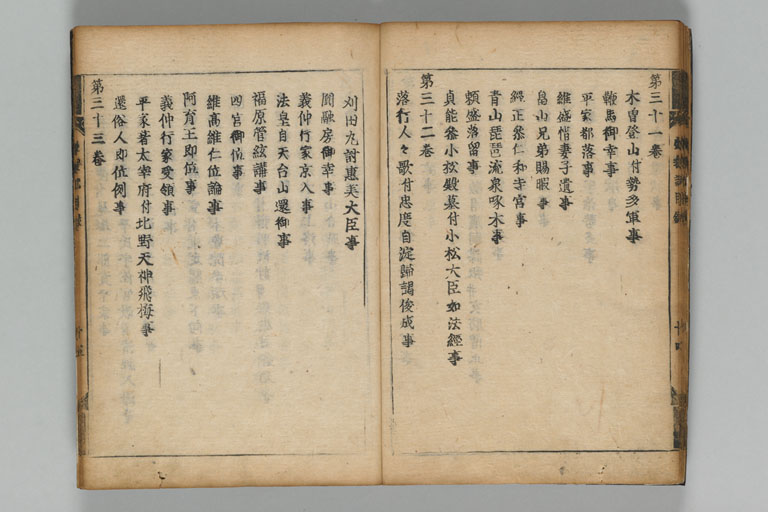 第三十一巻
木曽登山付勢多軍事
鞍馬御幸事
平家都落事
維盛惜妻子遺事
畠山兄弟賜暇事
経正参仁和寺宮事
青山琵琶流泉啄木事
頼盛落留事
貞能参小松殿墓付小松大臣如法経事
第三十二巻
落行人々歌付忠度自淀帰謁俊成事
刈田丸討恵美大臣事
円融房御幸事
義仲行家京入事
法皇自天台山還御事
福原管絃講事
四宮御位事
維高維仁位論事
阿育王即位事
義仲行家受領事
平家著太宰府付北野天神飛梅事
還俗人即位例事
第三十三巻